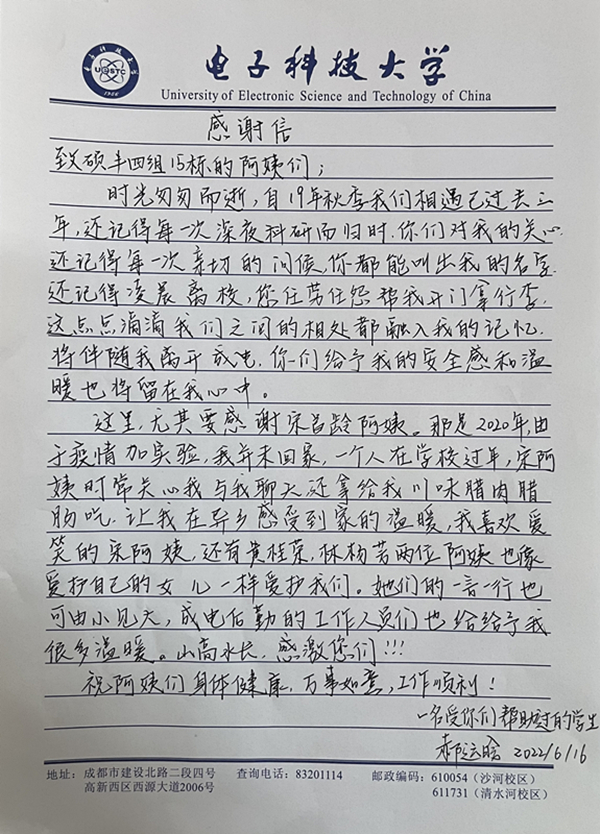 电子科技大学
University of Electronic Science and Technology of China
感谢信
致硕丰四组15栋的阿姨们;
时光匆匆而逝,自19年秋季我们相遇已过去三
年,还记得每一次深夜科研而归时,你们对我的关心.
还记得每一次亲切的问候,你都能叫出我的名字.
还记得凌晨离校,您任劳任怨帮我开门拿行李.
这点点滴滴我们之间的相处都融入我的记忆.
将伴随我离开成电.你们给予我的安全感和温
暖也将留在我心中。
这里,尤其要感谢宋吕龄阿姨。那是2020年,由
于疫情加实验,我并未回家,一个人在学校过年,宋阿
姨时常关心我与我聊天,还拿给我川味腊肉腊
肠吃.让我在异乡感受到家的温暖,我喜欢爱
笑的宋阿姨,还有黄桂荣,林杨芳两位阿姨也像
爱护自己的女儿一样爱护我们。她们的一言一行也
可由小见大,成电后勤的工作人员们也给给予我
很多温暖。山高水长,感激您们!!!
祝阿姨们身体健康.万事如意,工作顺利!
一名受你们帮助过的学生
郝运晗 2022/6/16
地址:成都市建设北路二段四号 查询电话:83201114 邮政编码:610054(沙河校区)
高新西区西源大道2006号 611731(清水河校区)